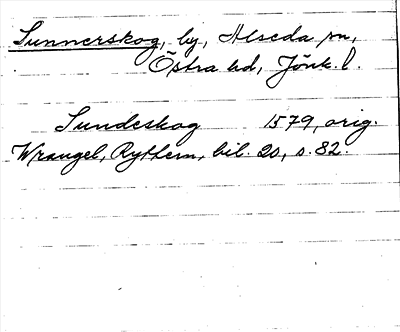 Sunnerskog, by, Alseda sn,
Östra hd, Jönk. l.
Sundeskog 1579, orig.
Wrangel, Rythem, bil. 20, s. 82.